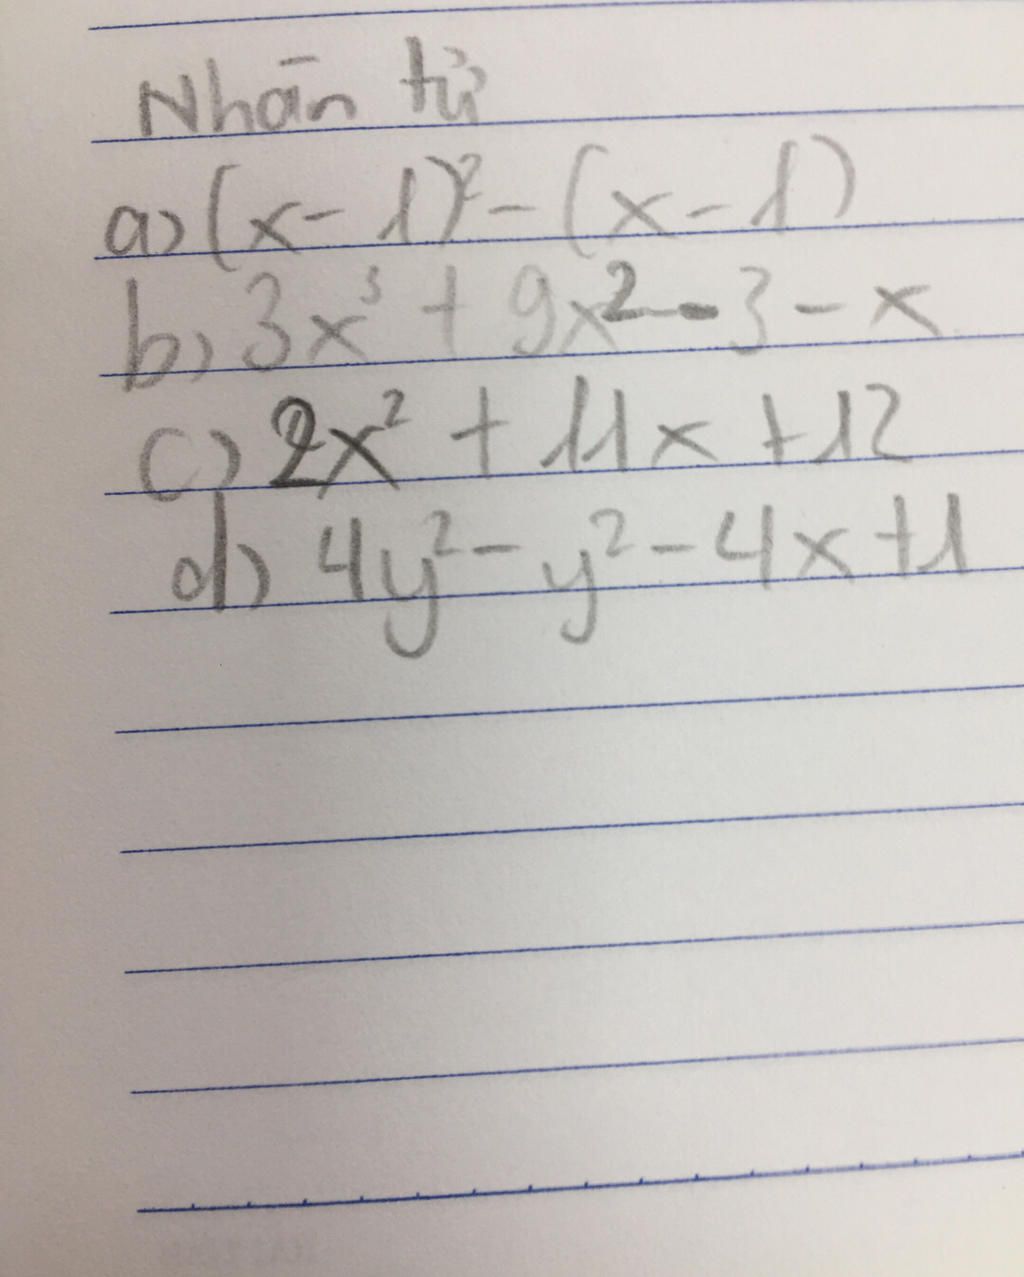 Nhān tử
a) (x - 1)² - (x - 1)
b) 3x³ + 9x² - 3 - x
c) 2x² + 11x + 12
d) 4y² - y² - 4x + 1